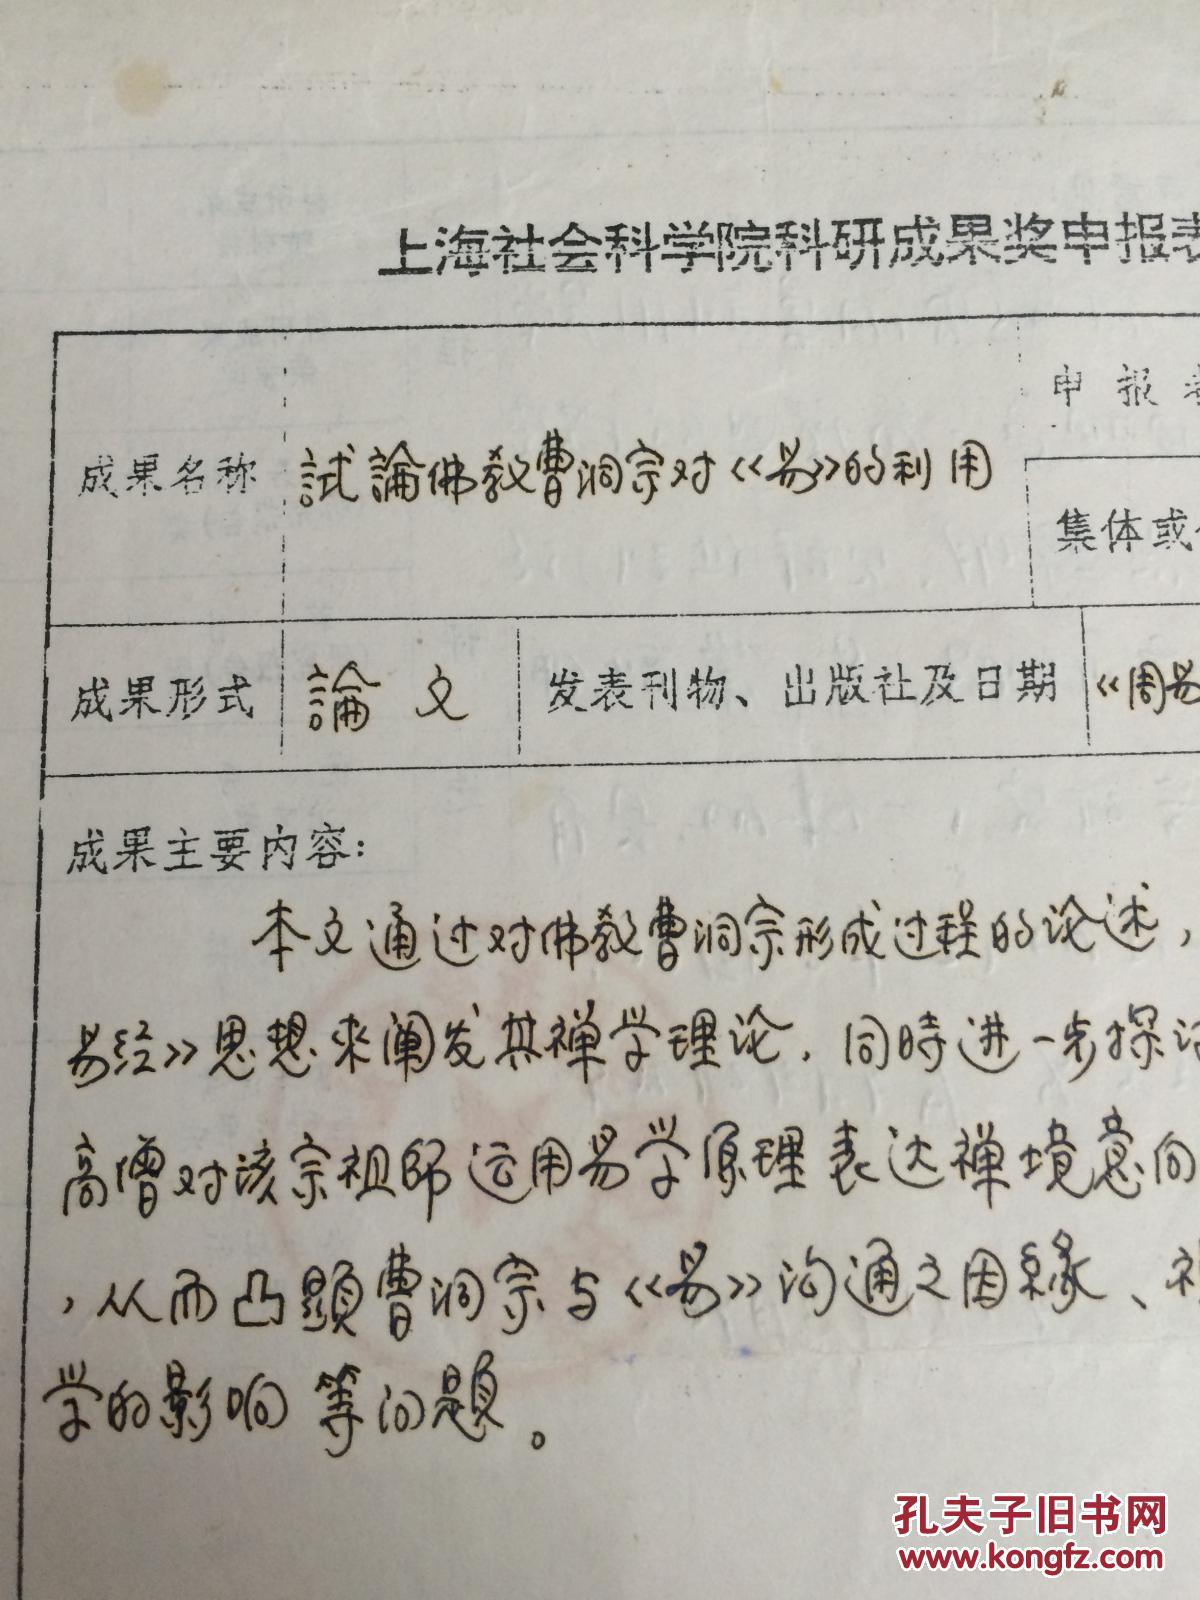 上海社会科学院科研成果奖申报表
申报者
成果名称 試論佛教曹洞宗对《易》的利用
集体或个
成果形式 論文 发表刊物、出版社及日期 《周易
成果主要内容:
本文通过对佛教曹洞宗形成过程的论述,
易经》思想来阐发其禅学理论,同時进一步探讨
高僧对该宗祖師运用易学原理表达禅境意向
,从而凸顯曹洞宗与《易》沟通之因緣、
学的影响等问题。
孔夫子旧书网
www.kongfz.com